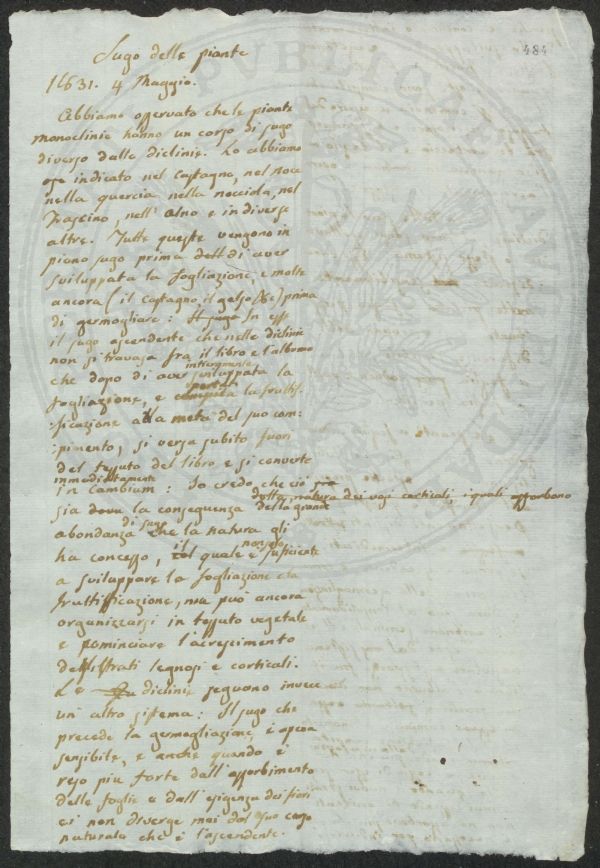 484
Sugo delle piante
1831. 4 Maggio.
Abbiamo osservato che le piante
monoclinie hanno un corso di sugo
diverso dalle diclinie. Lo abbiamo
indicato nel castagno, nel noce
nella quercia nella nocciola, nel
frassino, nell'alno e in diverse
altre. Tutte queste vengono in
pieno sugo prima di aver
sviluppata la fogliazione, e molte
ancora (il castagno, il gelso &c) prima
di germogliare: Il sugo In esse
il sugo ascendente che nelle diclinie
non si travasa fra il libro e l'alburno
che dopo di aver interamente sviluppata la
fogliazione, e portata compiuta la frutti-
ficazione alla metà del suo com-
pimento, si versa subito fuori
del tessuto del libro e si converte
immediatamente
in cambium: Io credo che ciò
sia dalla natura dei vasi corticali, i quali assorbono
la conseguenza della grande
abbondanza di sugo che la natura gli
ha concesso, il quale non solo è sufficiente
a sviluppare la fogliazione e la
fruttificazione, ma può ancora
organizzarsi in tessuto vegetale
e cominciare l'accrescimento
dei strati legnosi e corticali.
Le diclinie seguono invece
un altro sistema: Il sugo che
precede la germogliazione, è apena
sensibile, e anche quando è
reso più forte dall'assorbimento
delle foglie e dall'esigenza dei fiori
ei non diverge mai dal suo corso
naturale che è l'ascendente.